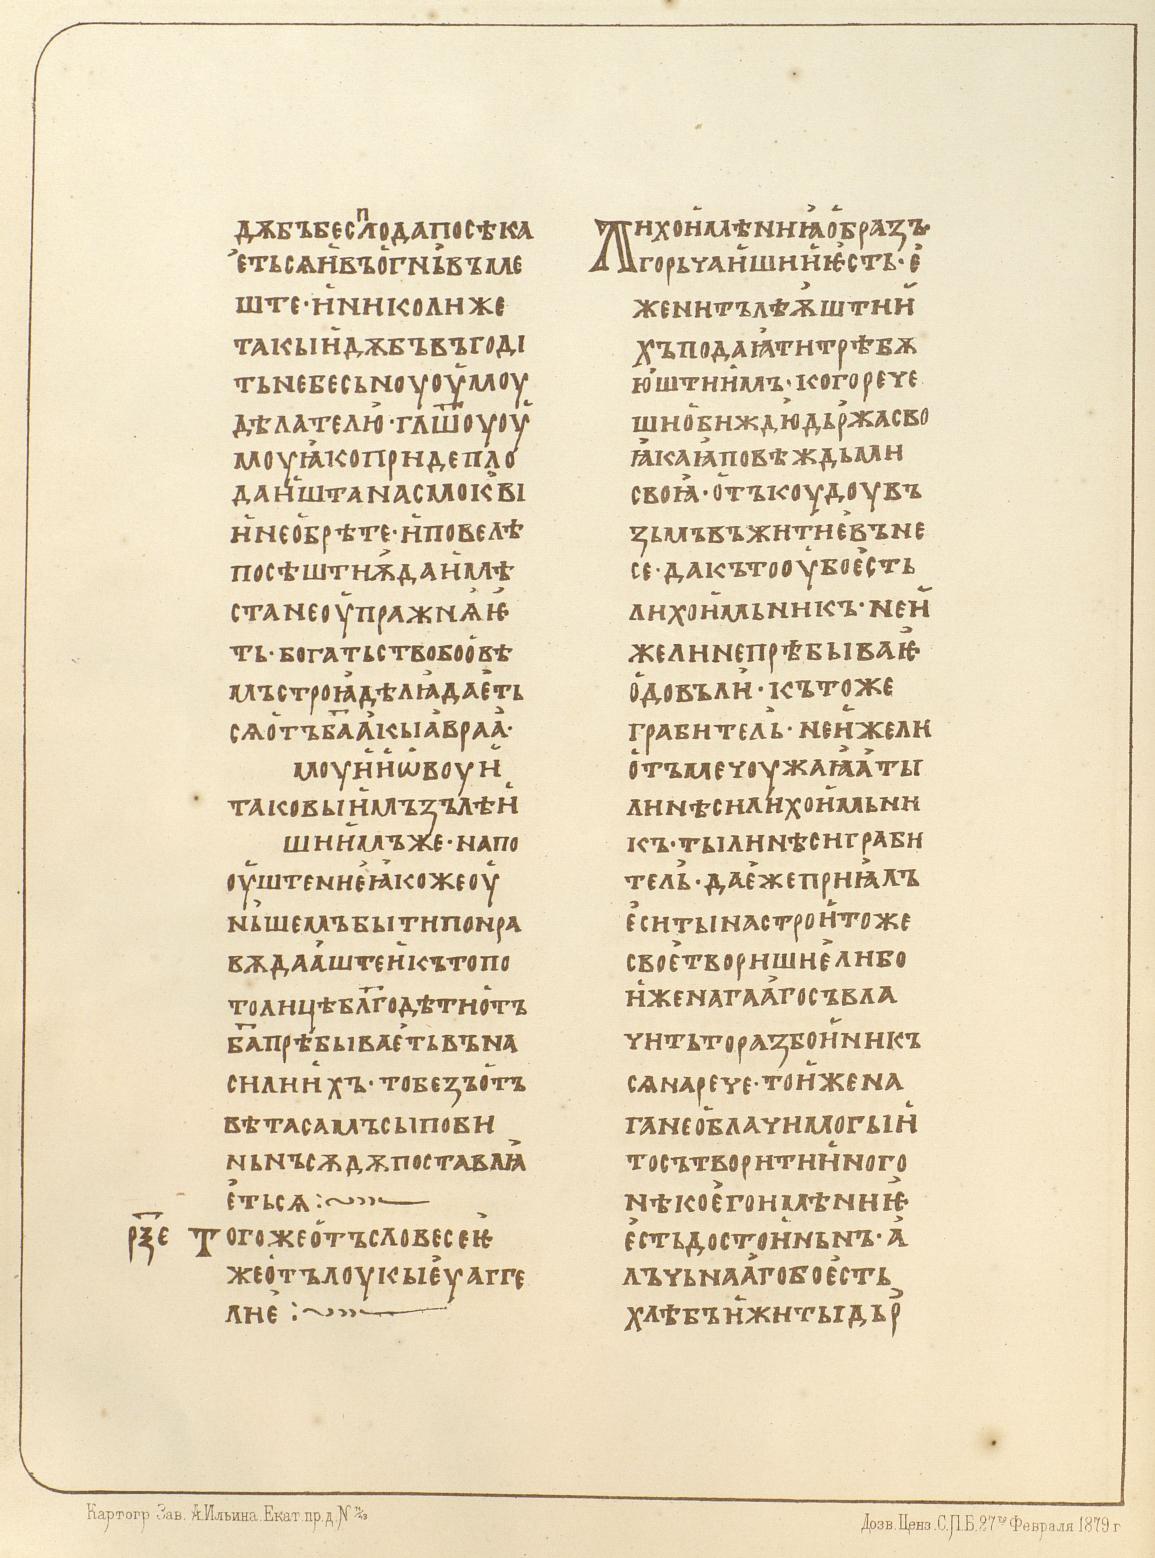 дѫбъ бесплода посѣка
еть сѧ и въ огнь въме
ште· и николиже
такыи дѫбъ въ годі
ть небесьноуоумоу
дѣлателю· глѭштоуоу
моу ꙗко приде пло
да иштѧ на смокъві
и не обрѣте· и повелѣ
посѣшти ѭ да и мѣ
ста не оупражнѧѥ
ть· богатьство бо овѣ
мъ строꙗ дѣлꙗ даеть
сѧ отъ ба акы авраа·
моу и иѡвоу и
таковыимъ зълѣи
шиимъ же· на по
оуштение ꙗкоже оу
ньшемъ быти по нра
вѫ да аште и къто по
толицѣ блгодѣти отъ
ба прѣбываеть въ на
силиихъ· то безъ отъ
вѣта самъ сы пови
ньнъ сѫдѫ поставлꙗ
еть сѧ :~
рѯе Тогоже отъ словесе ѥ
же отъ лоукы еуагге
лие :~
Лихоимѣниꙗ образъ
горьчаиши ѥсть· е
же ни тълѣѭштии
хъ подаꙗти трѣбѫ
ѭштиимъ· кого рече
ши обиждѫ дьржѧ сво
ꙗ каꙗ повѣждь ми
своꙗ· отъкѫдоу въ
зьмъ въ житие въне
се· да къто оубо есть
лихоимьникъ· неи
же ли не прѣбываѥ
о довъли· къто же
грабитель· неиже ли
отъмечоу жаꙗ а ты
ли нѣси лихоимьни
къ· ты ли нѣси граби
тель· да еже приꙗлъ
еси ты на строи то же
свое твориши е либо
иже нагааго съвла
чить то разбоиникъ
сѧ нарече· то иже на
га не облачи могыи
то сътворити и ного
нѣкоего имѣниѥ
есть достоиньнъ· а
лъчьнааго бо есть
хлѣбъ иже ты дьр
Картогр Зав. А.Ильина. Екат.пр.д.№ ⅔
Дозв. Ценз. С.П.Б. 27го Февраля 1879 г